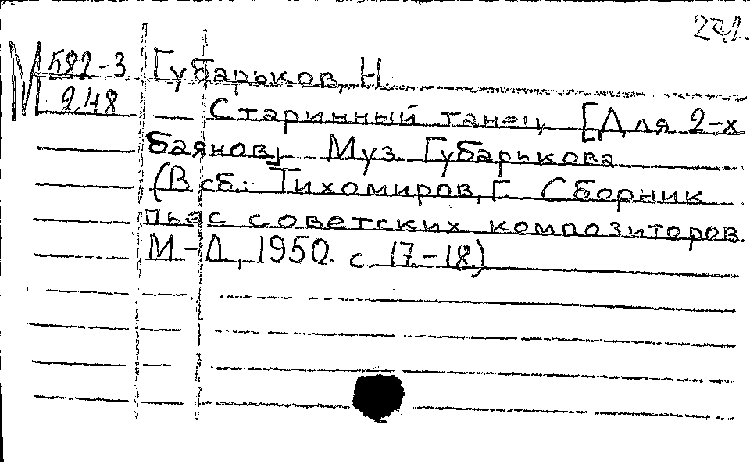 М 582-3 Губарьков, Н.
948 Старинный танец. [Для 2-х
баянов] Муз. Губарькова
(В сб.: Тихомиров, Г. Сборник
пьес советских композиторов.
М-Л, 1950. с. 17-18)